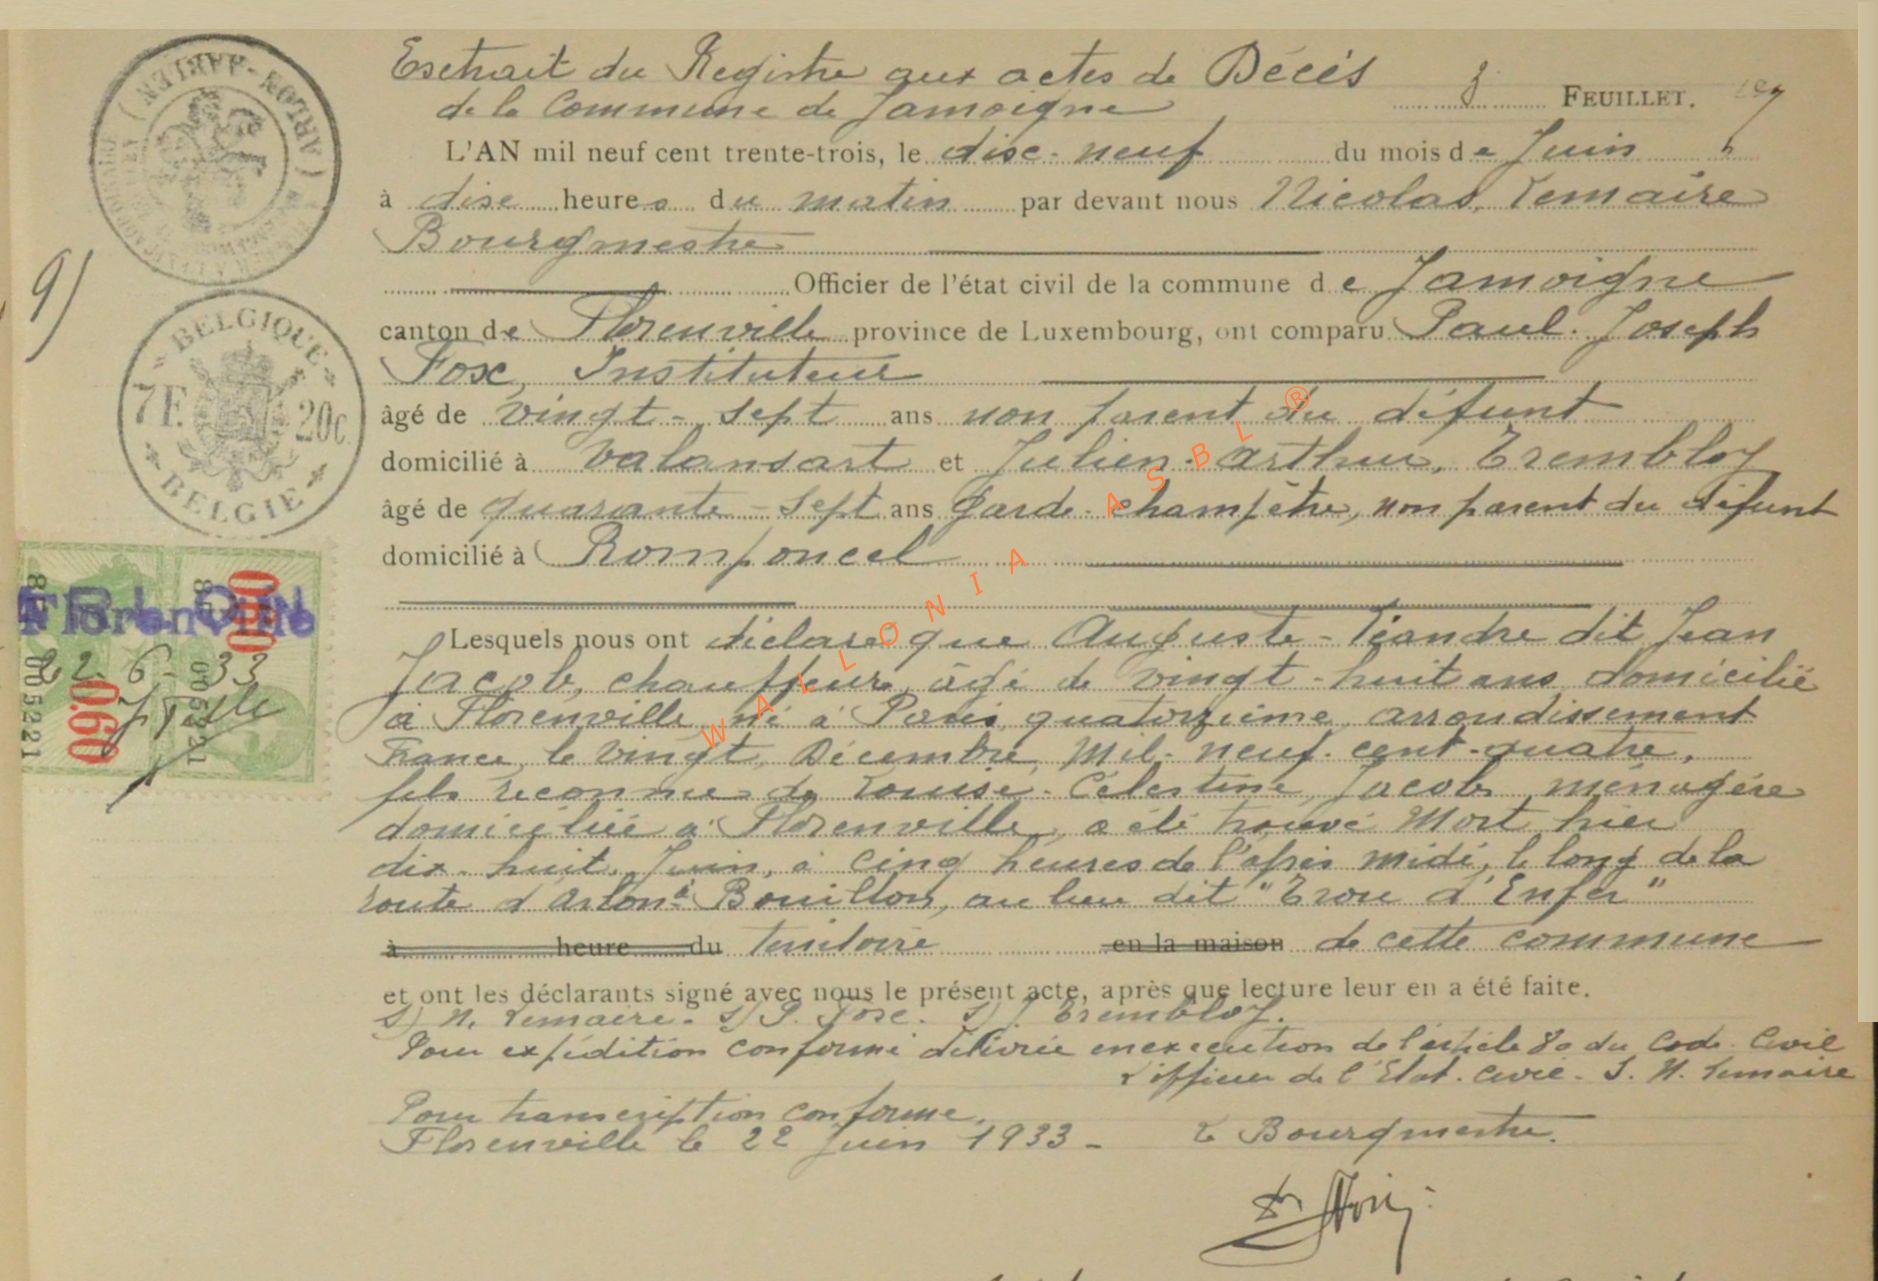 Extrait du Registre aux actes de Décès
de la Commune de Jamoigne
8 FEUILLET.
L'AN mil neuf cent trente-trois, le dix-neuf du mois de Juin
à dix heures du matin par devant nous Nicolas, Lemaire
Bourgmestre
9)
Officier de l'état civil de la commune de Jamoigne
canton de Florenville province de Luxembourg, ont comparu Paul-Joseph
Fox, Instituteur
âgé de vingt-sept ans non parent du défunt
domicilié à Valansart et Julien-Arthur, Trembloy
âgé de quarante-sept ans garde-champêtre, non parent du défunt
domicilié à Romponcel
Lesquels nous ont déclaré que Auguste-Léandre dit Jean
Jacob, chauffeur, âgé de vingt-huit ans domicilié
à Florenville, né à Paris, quatorzième, arrondissement
France, le vingt, Décembre, Mil-neuf-cent-quatre,
fils reconnu de Louise-Célestine, Jacob, ménagère
domiciliée à Florenville, a été trouvé Mort hier
dix-huit, Juin, à cinq heures de l'après midi, le long de la
route d'Arlon à Bouillon, au lieu dit "Trou d'Enfer"
à heure du territoire en la maison de cette commune
et ont les déclarants signé avec nous le présent acte, après que lecture leur en a été faite.
S) N. Lemaire. S) P. Fox. S) J. Trembloy.
Pour expédition conforme délivrée en exécution de l'article 80 du Code Civil
L'officier de l'Etat-Civil. S. N. Lemaire
Pour transcription conforme,
Florenville le 22 Juin 1933 - Le Bourgmestre.
BELGIQUE
7F. 20c
BELGIE
Florenville
22 6 33
0.60
0.60
005221
005221
WALLONIA ASBL ®